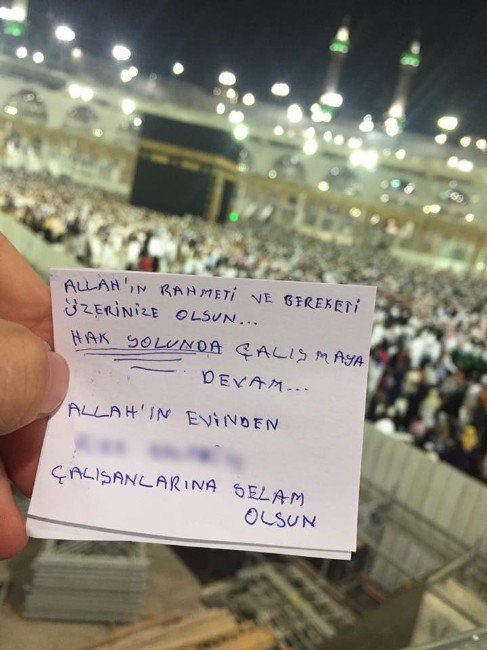 ALLAH'IN RAHMETİ VE BEREKETİ
ÜZERİNİZE OLSUN...
HAK YOLUNDA ÇALIŞMAYA
DEVAM...
ALLAH'IN EVİNDEN
ÇALIŞANLARINA SELAM
OLSUN